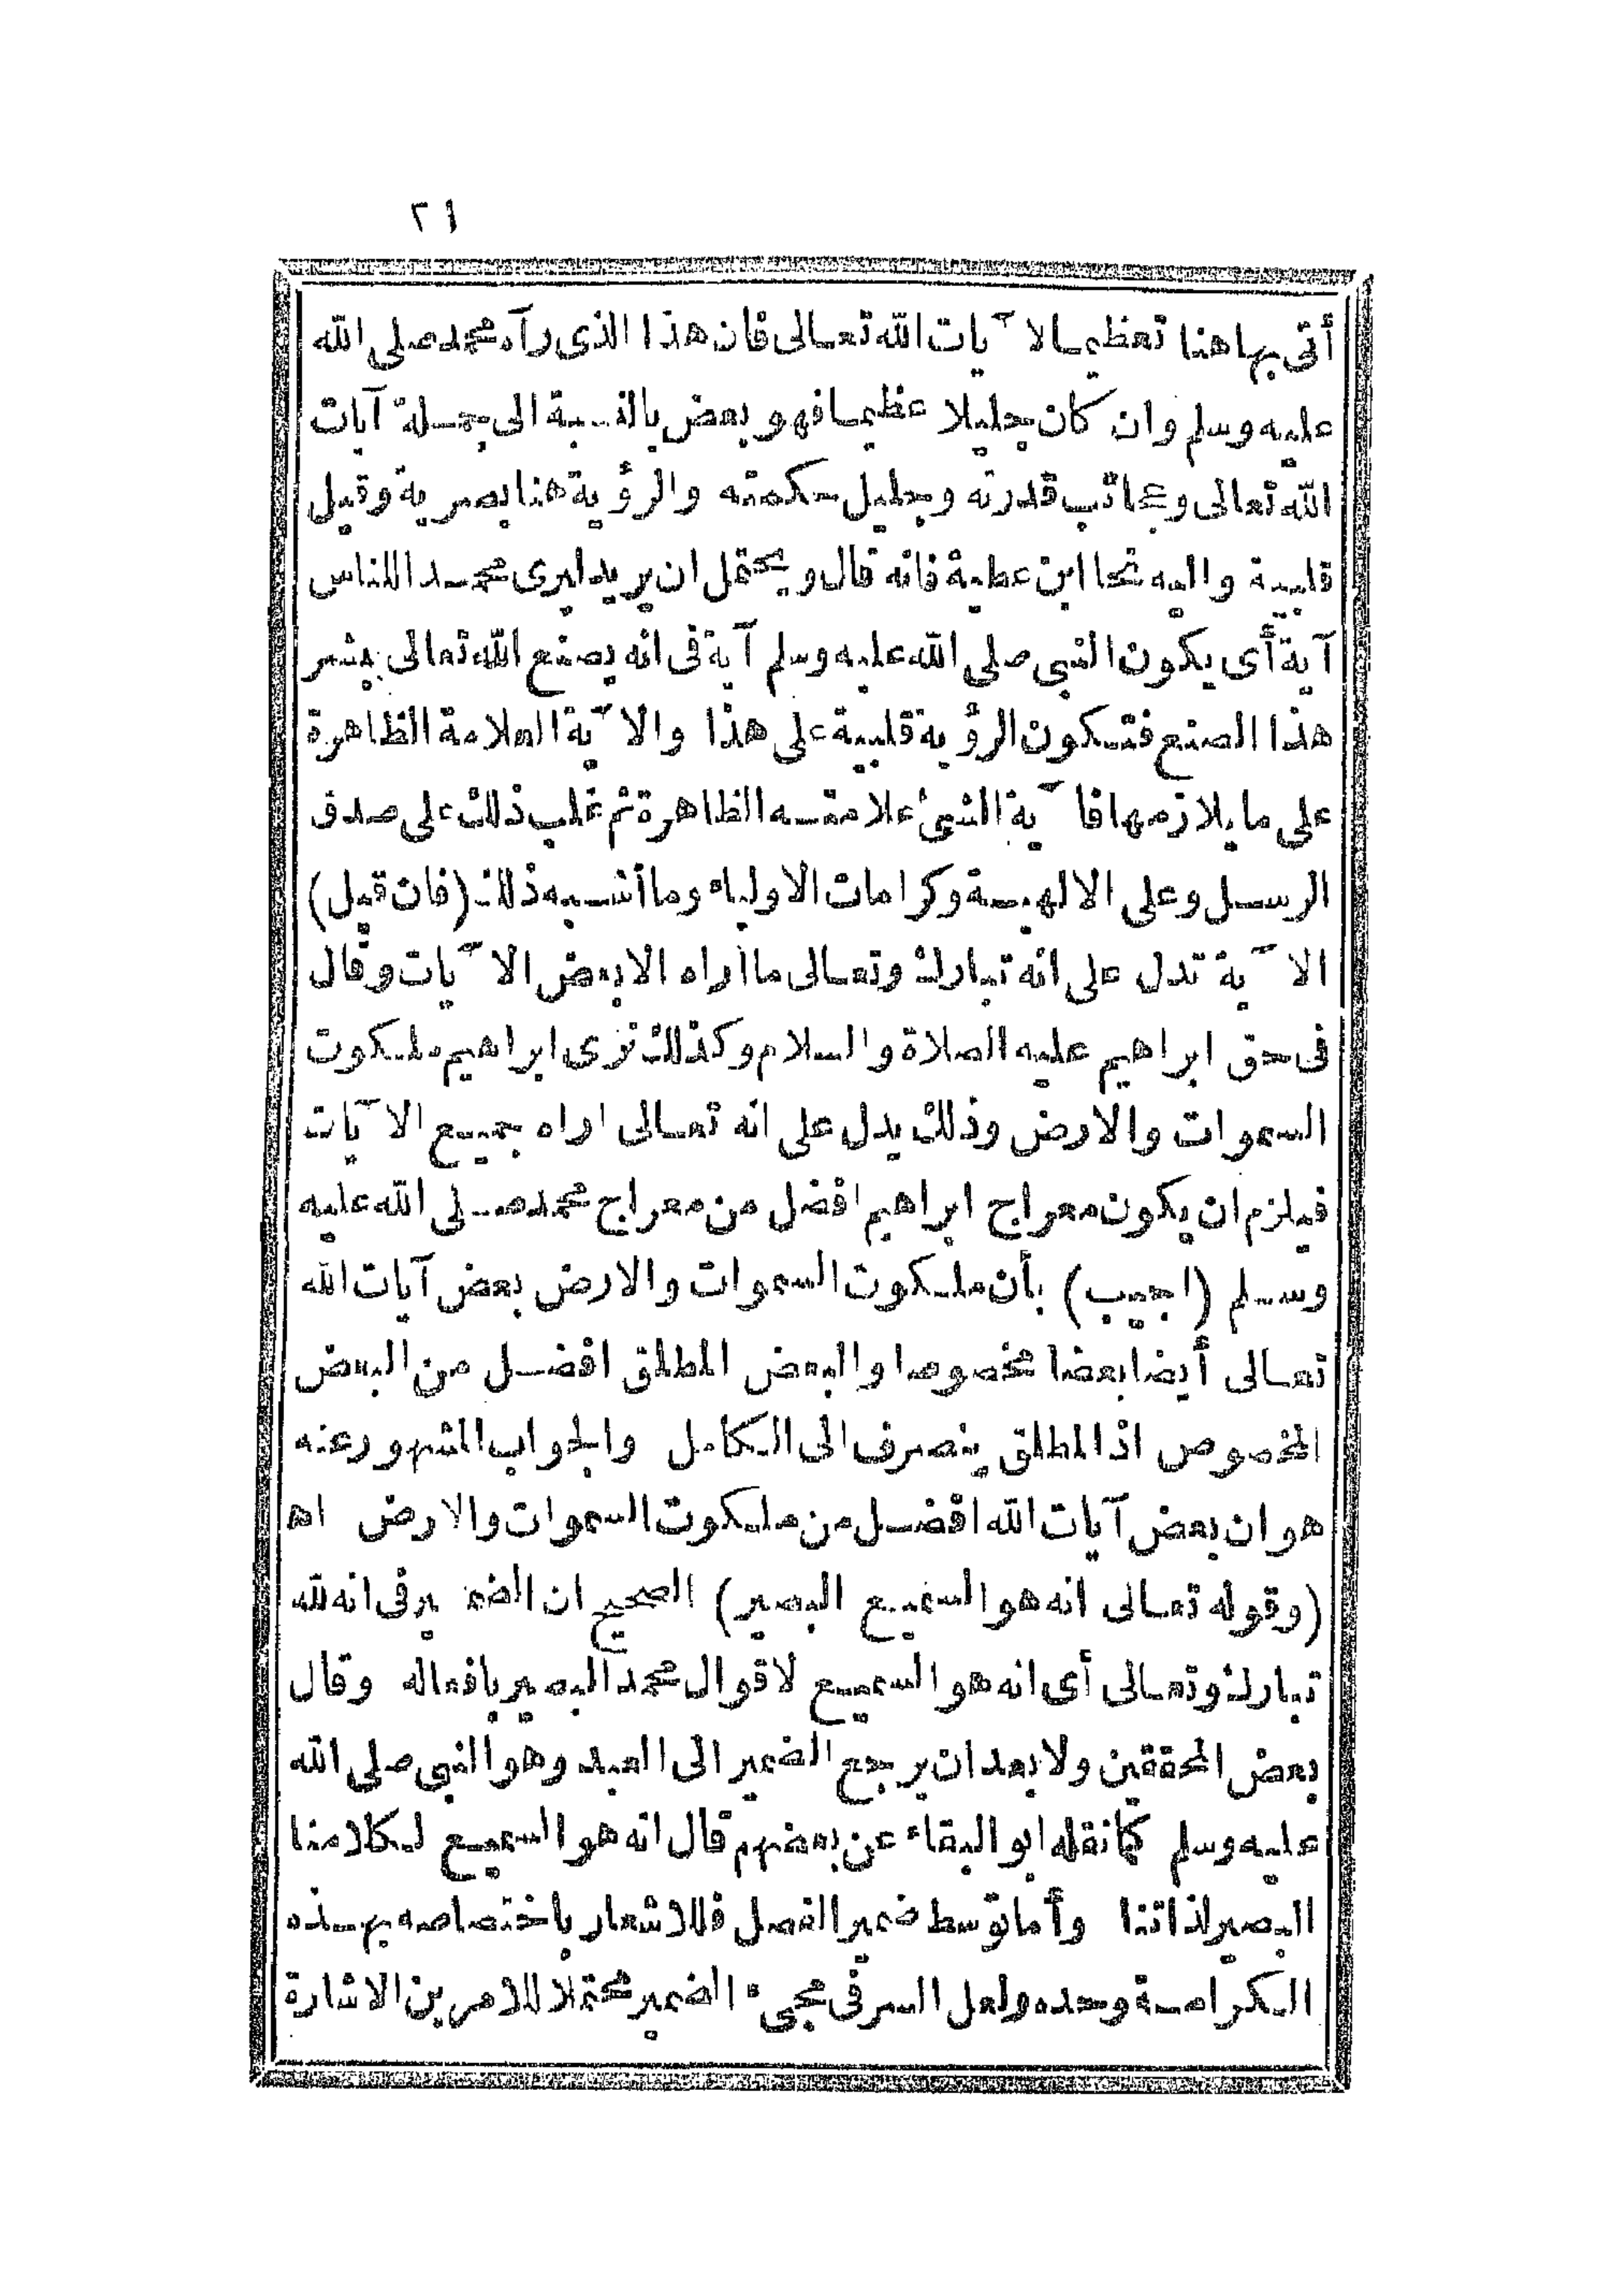 ٢١
أتى بها هنا تعظيما لا آيات الله تعالى فان هذا الذى رآه محمد صلى الله
عليه وسلم وان كان جليلا عظيما فهو بعض بالنسبة الى جملة آيات
الله تعالى وعجائب قدرته وجليل حكمته والرؤية هنا بصرية وقيل
قلبية واليه نحا ابن عطية فانه قال ويحتمل ان يريد ليرى محمد الناس
آية أى يكون النبى صلى الله عليه وسلم آية فى انه يصنع الله تعالى ببشر
هذا الصنع فتكون الرؤية قلبية على هذا والآية العلامة الظاهرة
على ما يلازمها فآية الشئ علامته الظاهرة ثم غلب ذلك على صدق
الرسل وعلى الالهية وكرامات الاولياء وما أشبه ذلك (فان قيل)
الآية تدل على انه تبارك وتعالى ما أراه الا بعض الآيات وقال
فى حق ابراهيم عليه الصلاة والسلام وكذلك نرى ابراهيم ملكوت
السموات والارض وذلك يدل على انه تعالى اراه جميع الآيات
فيلزم ان يكون معراج ابراهيم افضل من معراج محمد صلى الله عليه
وسلم (اجيب) بأن ملكوت السموات والارض بعض آيات الله
تعالى أيضا بعضا مخصوصا والبعض المطلق افضل من البعض
المخصوص اذ المطلق ينصرف الى الكامل والجواب المشهور عنه
هو ان بعض آيات الله افضل من ملكوت السموات والارض اه
(وقوله تعالى انه هو السميع البصير) الصحيح ان الضمير فى انه لله
تبارك وتعالى أى انه هو السميع لاقوال محمد البصير بافعاله وقال
بعض المحققين ولا بعد ان يرجع الضمير الى العبد وهو النبى صلى الله
عليه وسلم كما نقله ابو البقاء عن بعضهم قال انه هو السميع لكلامنا
البصير لذاتنا وأما توسط ضمير الفصل فللاشعار باختصاصه بهذه
الكرامة وحده ولعل السر فى مجىء الضمير محتملا للامرين الاشارة